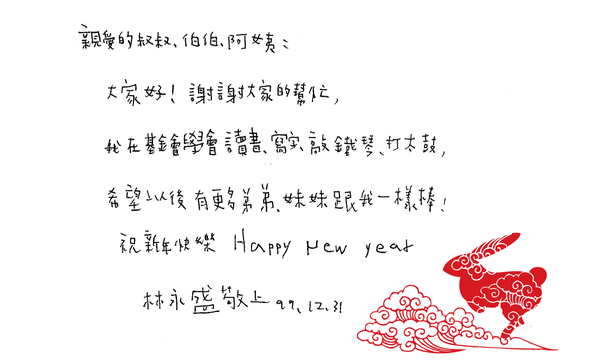 親愛的叔叔、伯伯、阿姨：
大家好！謝謝大家的幫忙，
我在基金會學會讀書、寫字、敲鐵琴、打太鼓，
希望以後有更多弟弟、妹妹跟我一樣棒！
祝新年快樂 Happy New year
林永盛敬上 99.12.31